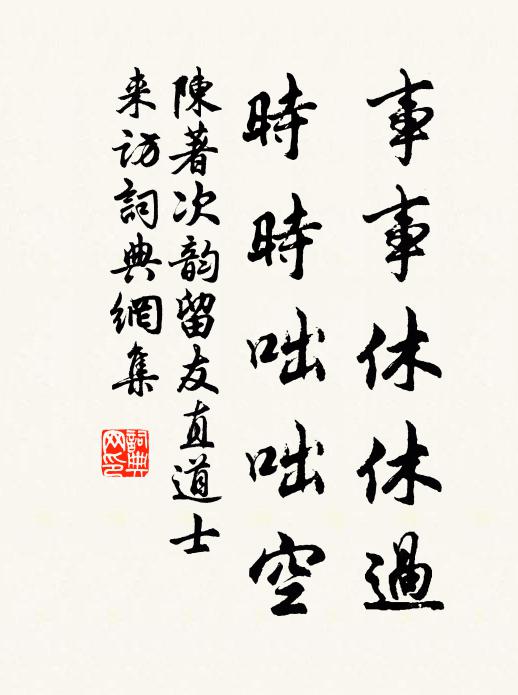 事事休休過
時時咄咄空
陳著次韵留友直道士
来访詞典網集
詞典网印